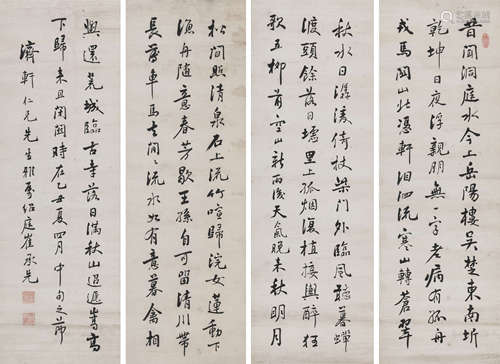 昔聞洞庭水今上岳陽樓吳楚東南坼
乾坤日夜浮親朋無一字老病有孤舟
戎馬關山北憑軒泗流寒山轉蒼翠
秋水日潺湲倚杖柴門外臨風聽暮蟬
渡頭餘落日墟里上孤烟復值接輿醉狂
歌五柳前空山新雨後天氣晚來秋明月
松間照清泉石上流竹喧歸浣女蓮動下
漁舟隨意春芳歇王孫自可留清川帶
長薄車馬去閒閒流水如有意暮禽相
與還荒城臨古寺落日滿秋山迢遞嵩高
下歸來且閉關時在乙丑夏四月中旬之節
濟軒仁兄先生雅屬紹庭崔承先